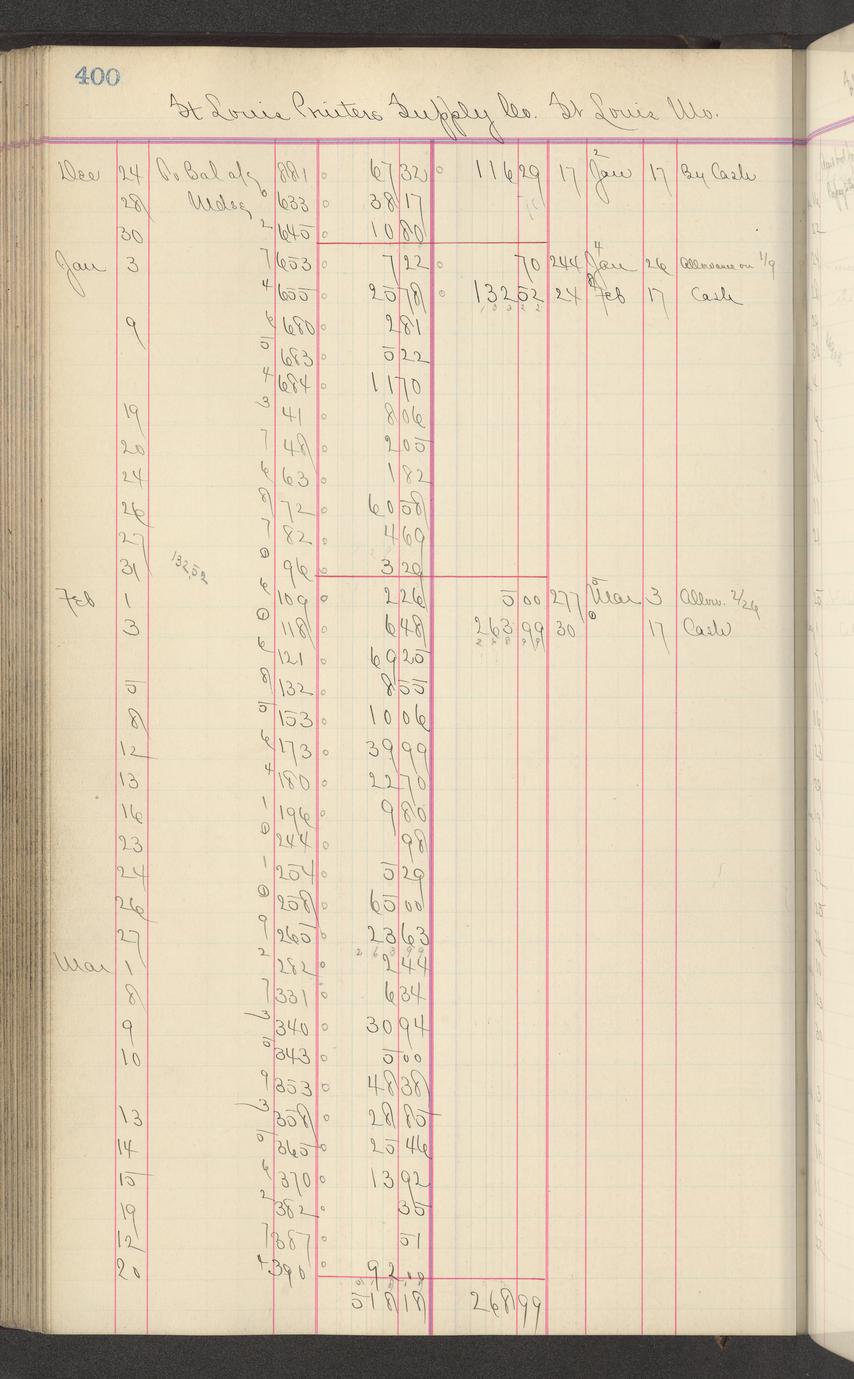 400
St Louis Printers Supply Co. St Louis Mo.
Dec 24 To Bal a/c 881 67 32 116 29 17 Jan 17 By Cash
28 Mdse 6 633 38 17
30 2 645 10 80
Jan 3 7 653 7 22 70 244 Jan 26 Allowance on 1/9
4 655 25 78 132 52 24 Feb 17 Cash
9 6 680 2 81
5 683 5 22
4 684 11 70
19 3 41 8 06
20 7 48 2 05
24 6 63 1 82
26 8 72 60 58
27 7 82 4 69
31 132,52 0 96 3 29
Feb 1 6 109 2 26 5 00 277 Mar 3 Allow. 2/26
3 0 118 6 48 263 99 30 17 Cash
6 121 69 25
5 8 132 8 55
8 5 153 10 06
12 6 173 39 99
13 4 180 22 70
16 1 196 9 80
23 0 244 98
24 1 254 5 29
26 0 258 65 00
27 9 265 23 63
Mar 1 2 282 2 44
8 7 331 6 34
9 3 340 30 94
10 5 343 5 00
9 353 48 38
13 3 358 28 85
14 5 365 25 46
15 6 370 13 92
19 2 382 35
12 7 387 51
20 4 390 92 00
518 18 268 99